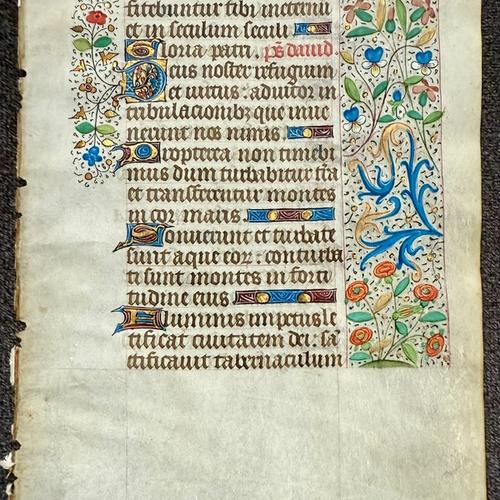 fitebuntur tibi in eternū
et in seculum seculi
Gloria patri. ps̄ dauid
Deus noster refugium
et uirtus: adiutor in
tribulacionibꝫ que inue
nerunt nos nimis
Propterea non timebi
mus dum turbabitur t̄ra
et transferentur montes
in cor maris
Sonuerunt et turbate
sunt aque eoꝝ: conturba
ti sunt montes in forti
tudine eius
Fluminis impetus le
tificat ciuitatem dei: sā
ctificauit tabernaculum